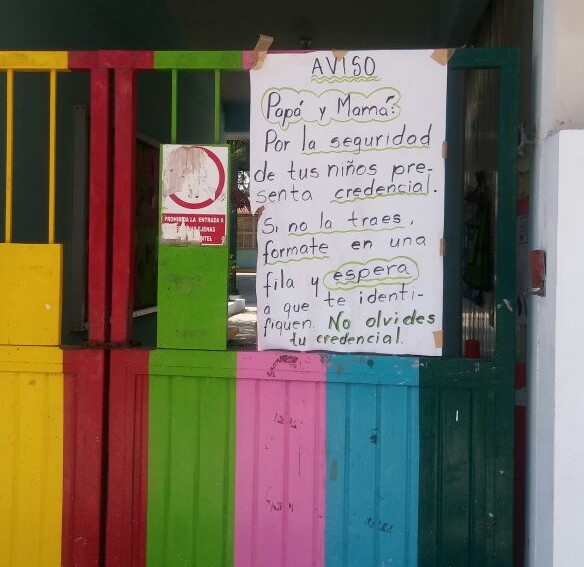 AVISO
Papá y Mamá:
Por la seguridad
de tus niños pre-
senta credencial.
Si no la traes,
formate en una
fila y espera
a que te identi-
fiquen. No olvides
tu credencial.
PROHIBIDA LA ENTRADA A
AJENAS
NTEL